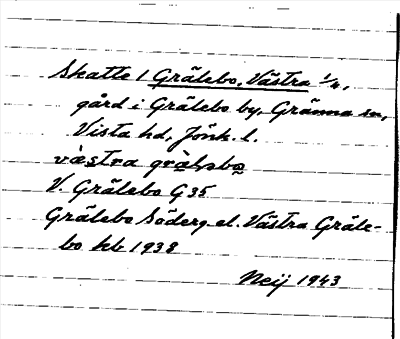 Skatte 1 Grälebo, Västra 1/4,
gård i Grälebo by, Gränna sn,
Vista hd, Jönk. l.
västra grälebo
V. Grälebo G35
Grälebo Söderg. el. Västra Gräle-
bo kb 1938
Neij 1943